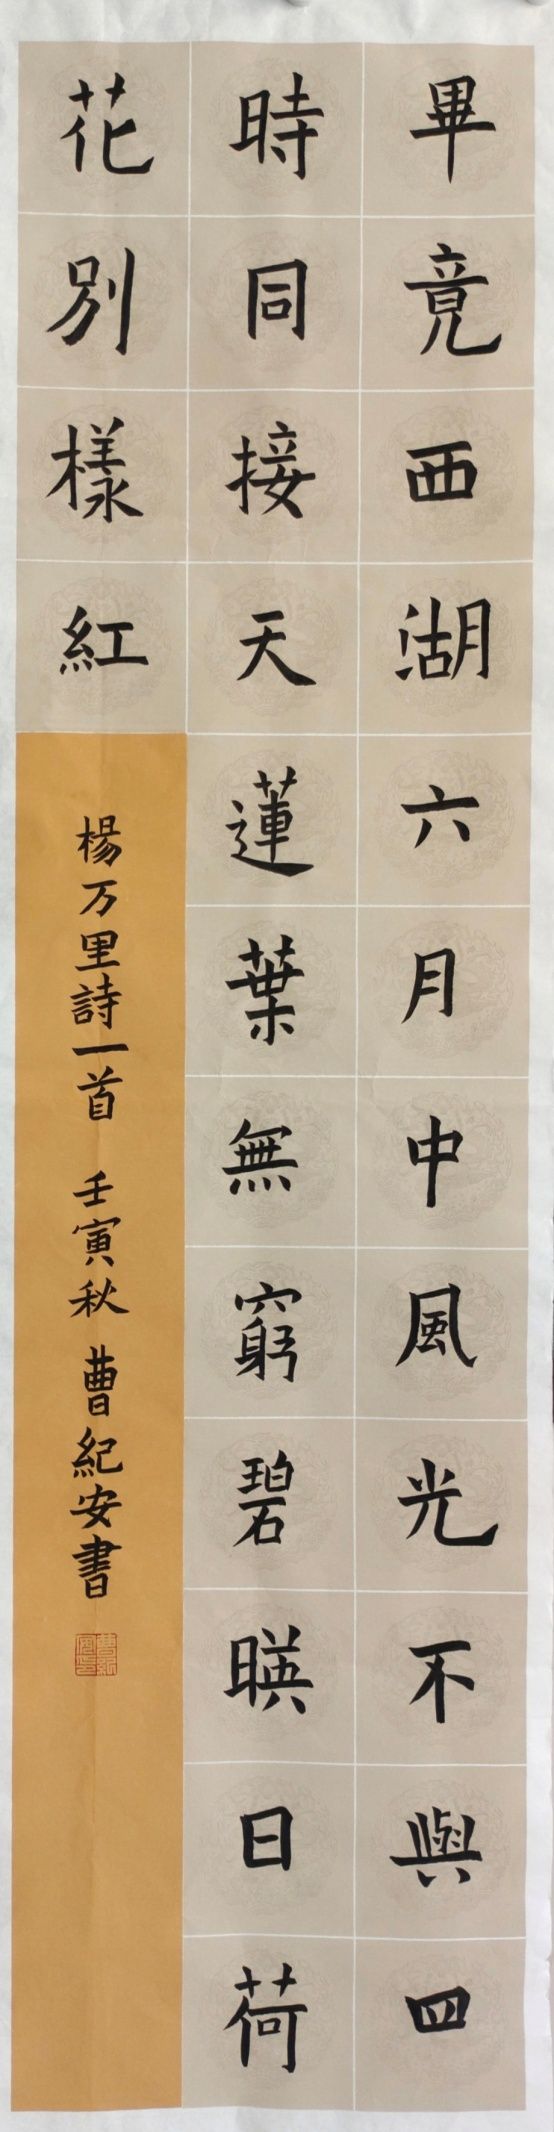 畢竟西湖六月中風光不與四
時同接天蓮葉無窮碧暎日荷
花別樣紅
楊万里詩一首 壬寅秋 曹紀安書